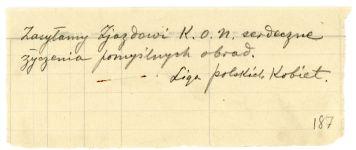 Zasyłamy Zjazdowi K. O. N. serdeczne
życzenia pomyślnych obrad.
Liga polskich Kobiet.
187